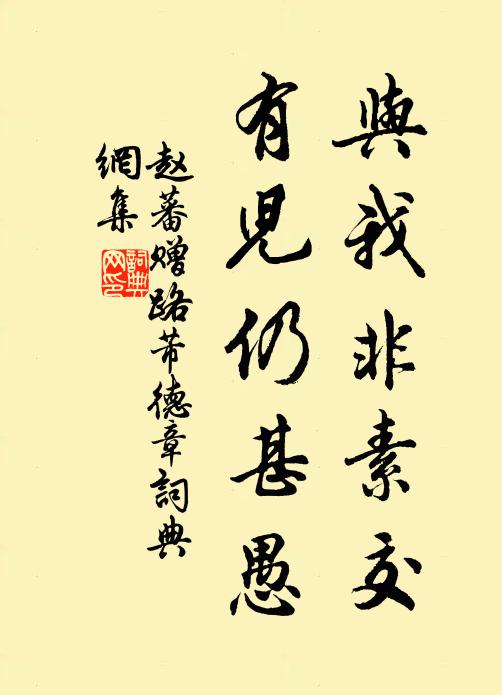 與我非素交
有児仍甚愚
赵蕃赠路芾德章詞典
網集
詞典
网印